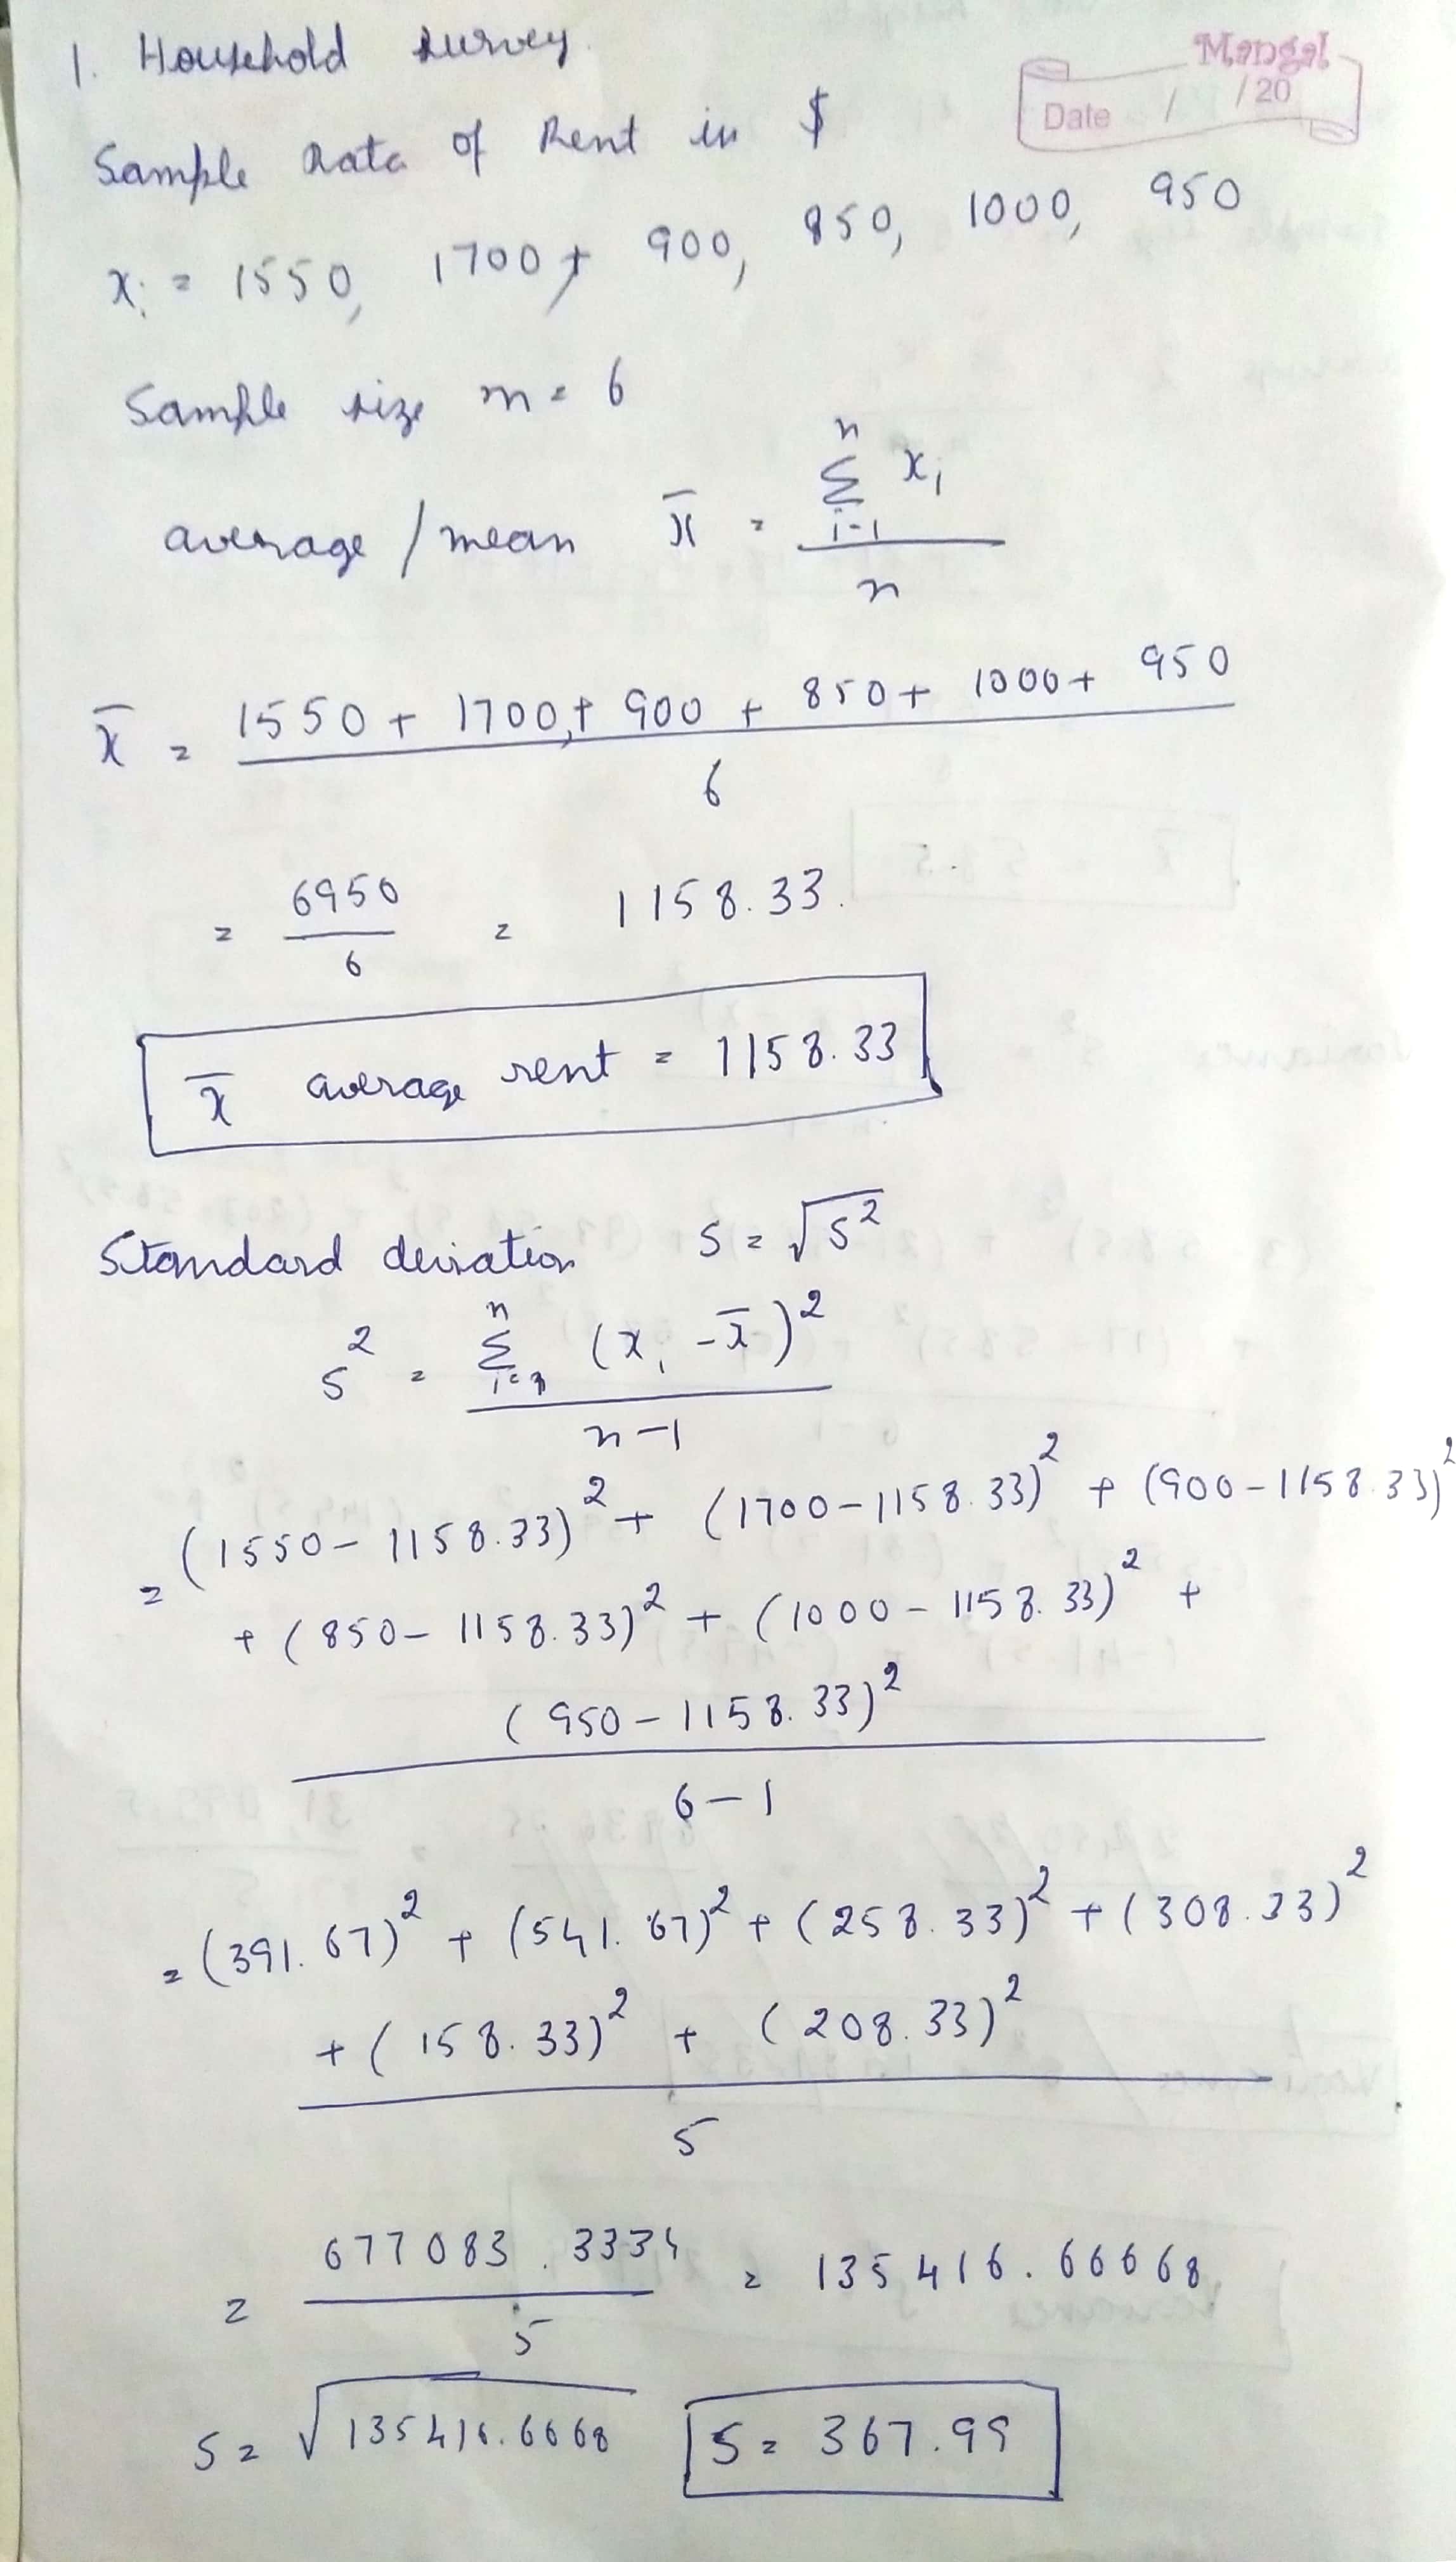 1. Household survey.
Mangal
Date / /20
Sample Data of Rent in $
xi = 1550, 1700, 900, 850, 1000, 950
Sample size n = 6
average / mean x̄ = n Σ i=1 xi / n
x̄ = 1550 + 1700 + 900 + 850 + 1000 + 950
6
= 6950 / 6 = 1158.33.
x̄ average rent = 1158.33
Standard deviation S = √S²
S² = n Σ i=1 (xi - x̄)²
n-1
= (1550 - 1158.33)² + (1700 - 1158.33)² + (900 - 1158.33)²
+ (850 - 1158.33)² + (1000 - 1158.33)² +
(950 - 1158.33)²
6 - 1
= (391.67)² + (541.67)² + (258.33)² + (308.33)²
+ (158.33)² + (208.33)²
5
= 677083.3334 / 5 = 135416.66668
S = √135416.6668 S = 367.99